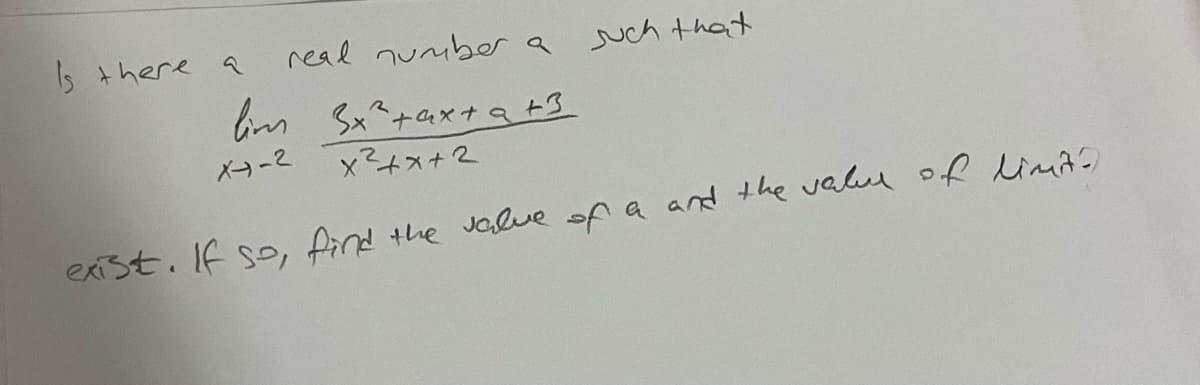 Is there a real number a such that
lim 3x²+ax+a+3
x→-2 x²+x+2
exist. If so, find the value of a and the value of limit?